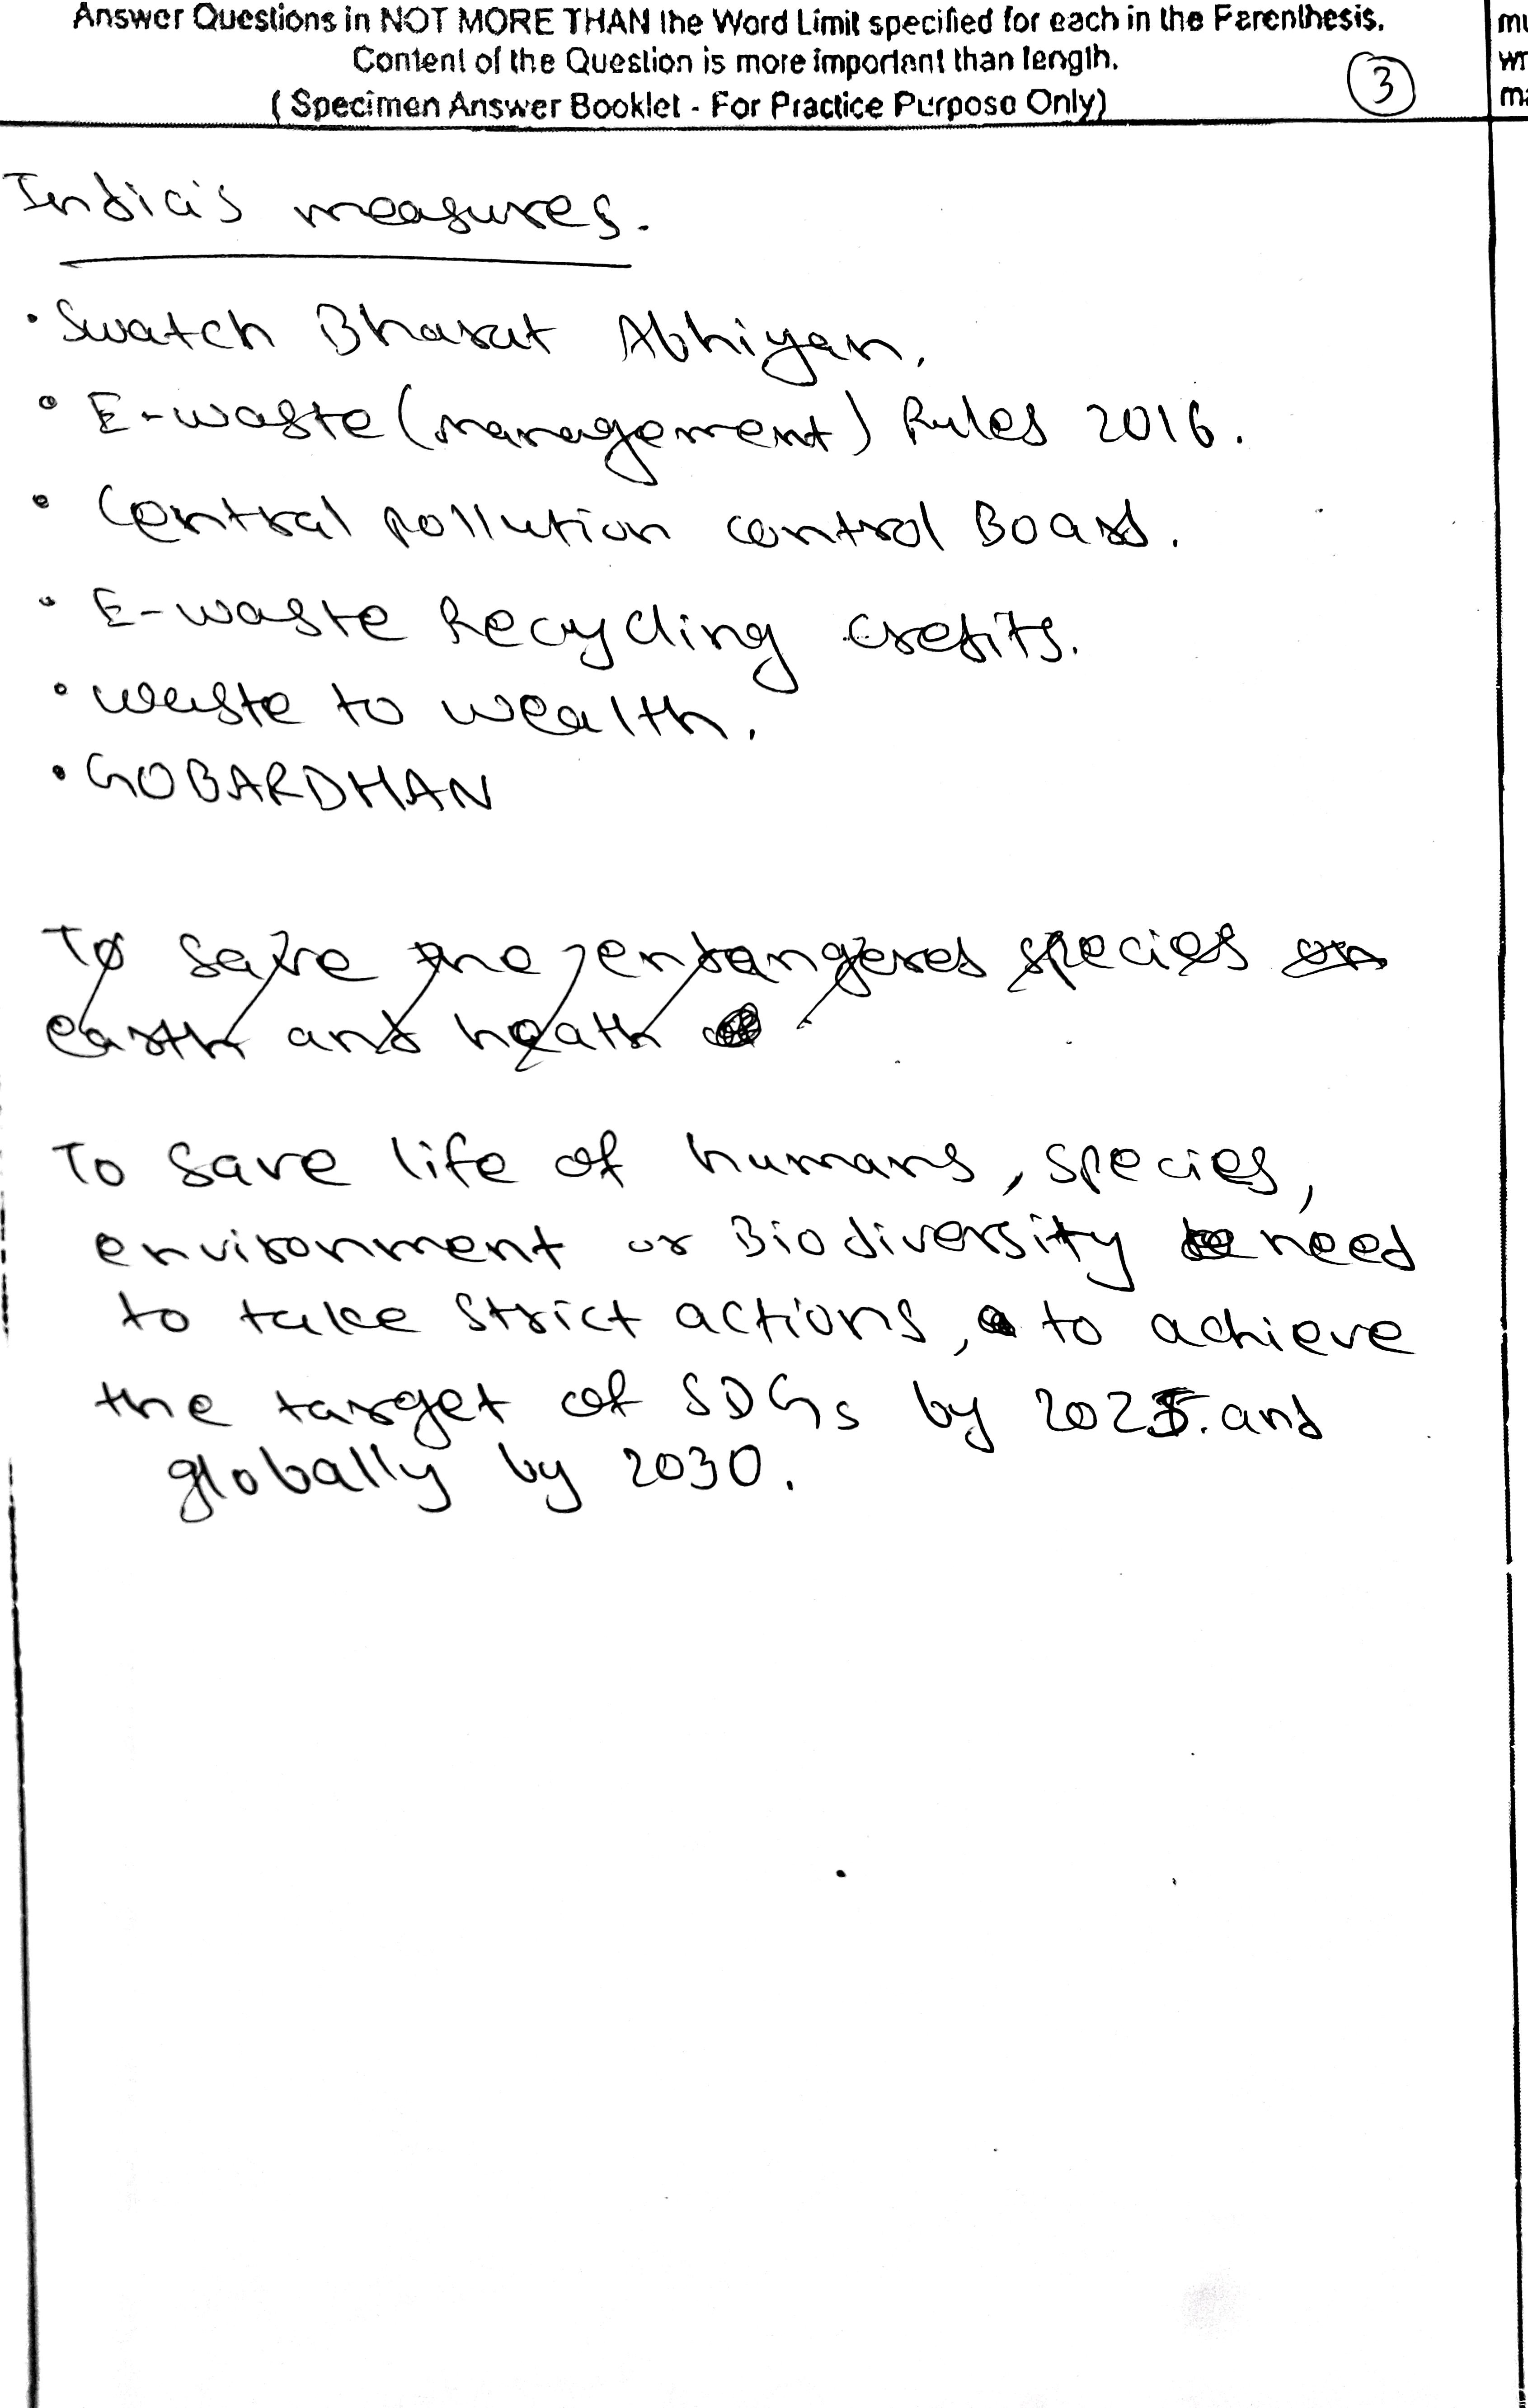 Answer Questions in NOT MORE THAN the Word Limit specified for each in the Parenthesis.
Content of the Question is more important than length.
( Specimen Answer Booklet - For Practice Purpose Only)
3
India's measures.
• Swatch Bharat Abhiyan.
• E-waste (management) Rules 2016.
• Central pollution control Board.
• E-waste Recycling credits.
• Waste to wealth.
• GOBARDHAN
To save the endangered species on
earth and heath
To save life of humans, species,
environment or Biodiversity need
to take strict actions, to achieve
the target of SDGs by 2025. and
globally by 2030.